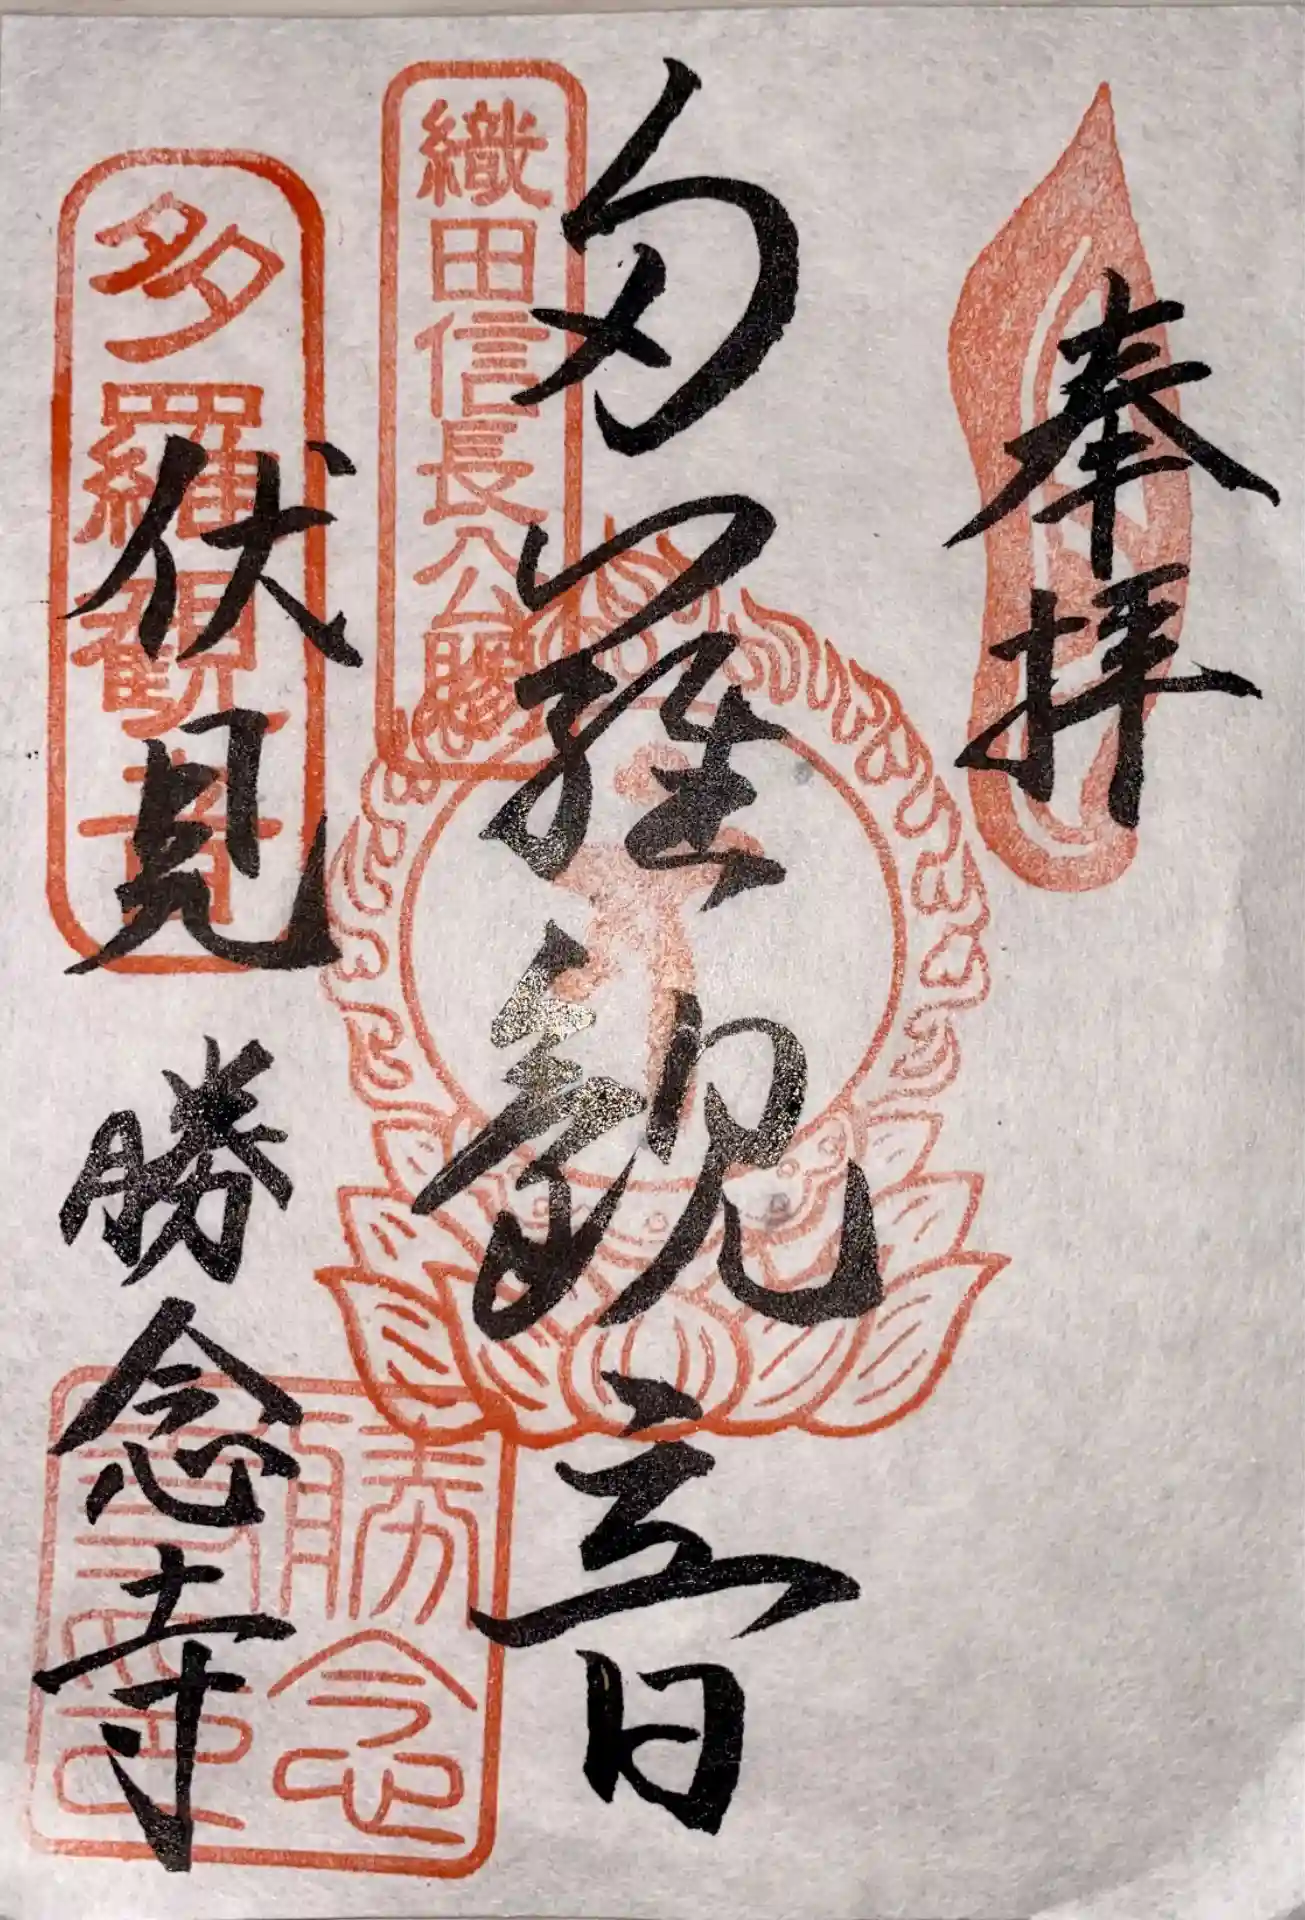 奉拝
多羅観音
織田信長公賜
伏見 勝念寺
多羅觀音
勝念